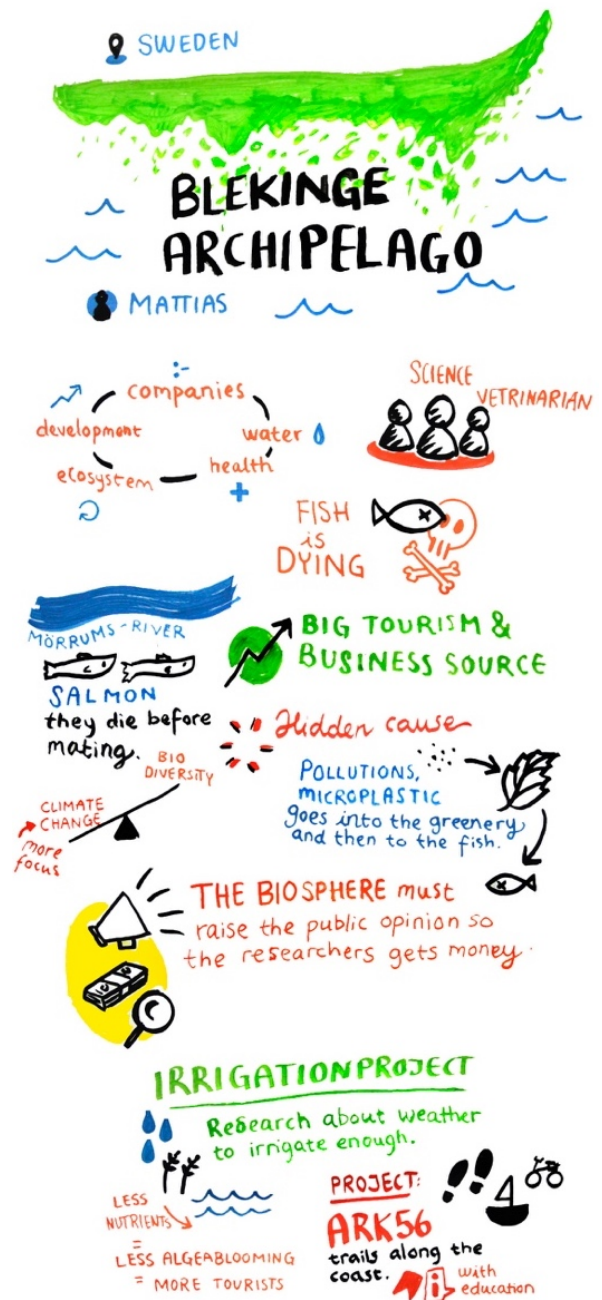 SWEDEN
BLEKINGE
ARCHIPELAGO
MATTIAS
companies
development
water
health
ecosystem
SCIENCE
VETRINARIAN
FISH
is
DYING
MÖRRUMS-RIVER
SALMON
they die before
mating.
BIG TOURISM &
BUSINESS SOURCE
Hidden cause
POLLUTIONS,
MICROPLASTIC
goes into the greenery
and then to the fish.
BIO
DIVERSITY
CLIMATE
CHANGE
more
focus
THE BIOSPHERE must
raise the public opinion so
the researchers gets money.
IRRIGATIONPROJECT
Research about weather
to irrigate enough.
LESS
NUTRIENTS
=
LESS ALGEABLOOMING
= MORE TOURISTS
PROJECT:
ARK56
trails along the
coast.
with
education